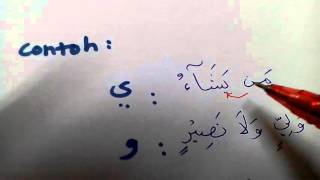 contoh:
ي : مَن يَشَآءُ
و : وَلِيٍّ وَلَا نَصِيْرٍ